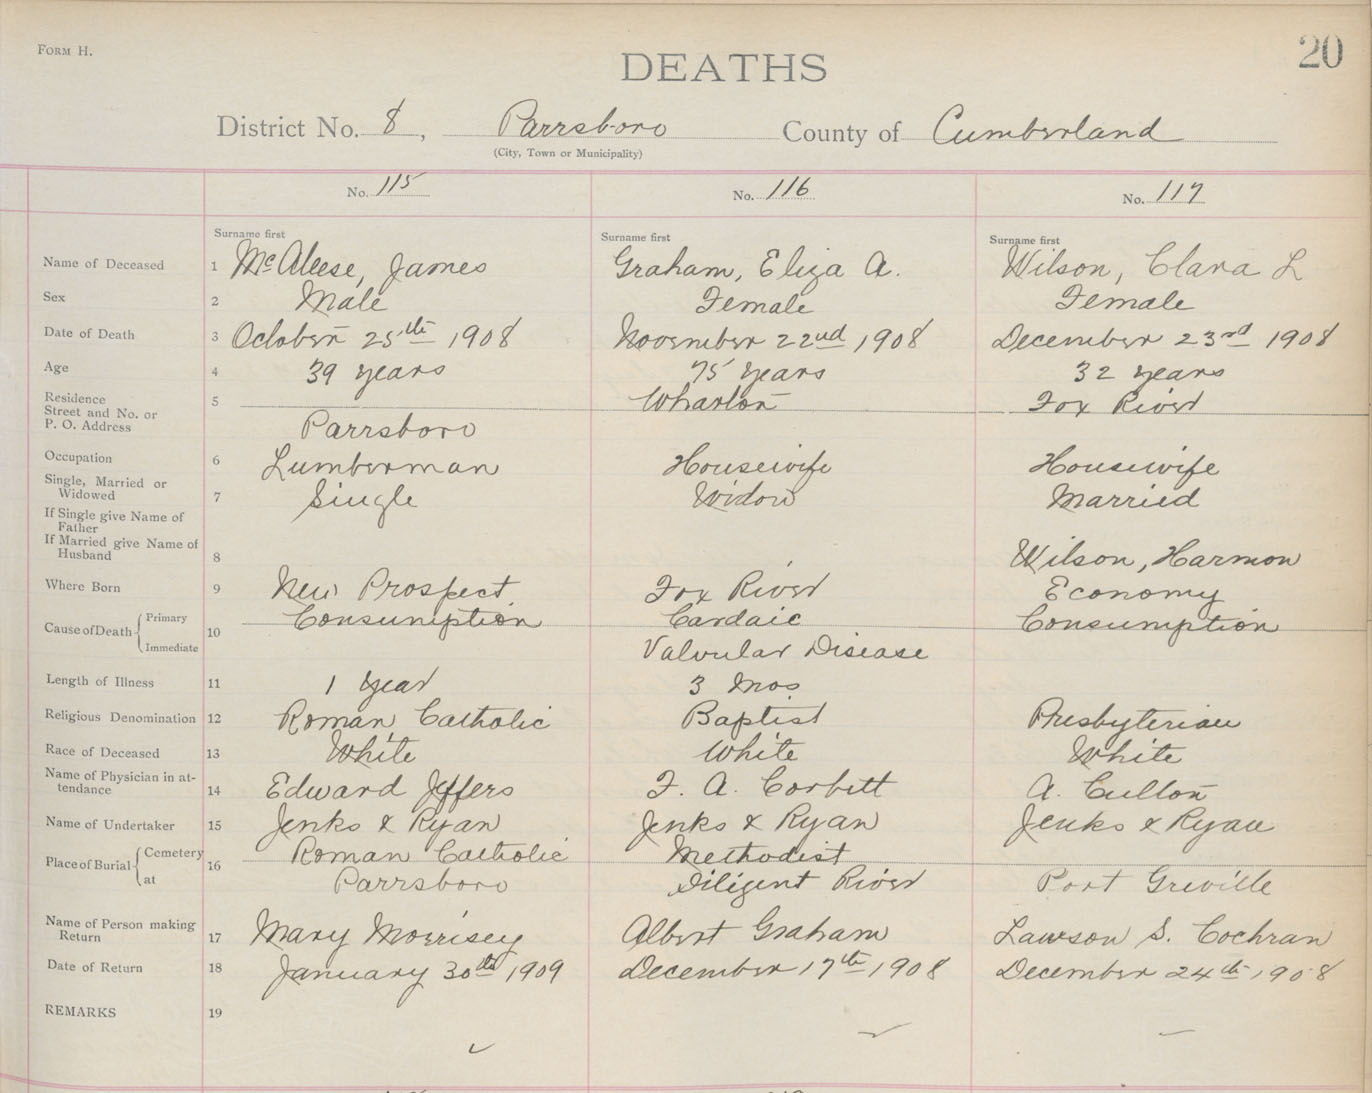 FORM H.
20
DEATHS
District No. 8, Parrsboro County of Cumberland
(City, Town or Municipality)
No. 115 No. 116 No. 117
Surname first Surname first Surname first
Name of Deceased 1 McAleese, James Graham, Eliza A. Wilson, Clara L
Sex 2 Male Female Female
Date of Death 3 October 25th 1908 November 22nd 1908 December 23rd 1908
Age 4 39 years 75 years 32 years
Residence 5 Wharton Fox River
Street and No. or
P. O. Address Parrsboro
Occupation 6 Lumberman Housewife Housewife
Single, Married or
Widowed 7 Single Widow Married
If Single give Name of
Father
If Married give Name of
Husband 8 Wilson, Harmon
Where Born 9 New Prospect Fox River Economy
Cause of Death Primary 10 Consumption Cardaic Consumption
Immediate Valvular Disease
Length of Illness 11 1 Year 3 Mos
Religious Denomination 12 Roman Catholic Baptist Presbyterian
Race of Deceased 13 White White White
Name of Physician in at-
tendance 14 Edward Jeffers F. A. Corbett A. Culton
Name of Undertaker 15 Jenks & Ryan Jenks & Ryan Jenks & Ryan
Place of Burial Cemetery 16 Roman Catholic Methodist
at Parrsboro Diligent River Port Greville
Name of Person making
Return 17 Mary Morrisey Albert Graham Lawson S. Cochran
Date of Return 18 January 30th 1909 December 17th 1908 December 24th 1908
REMARKS 19